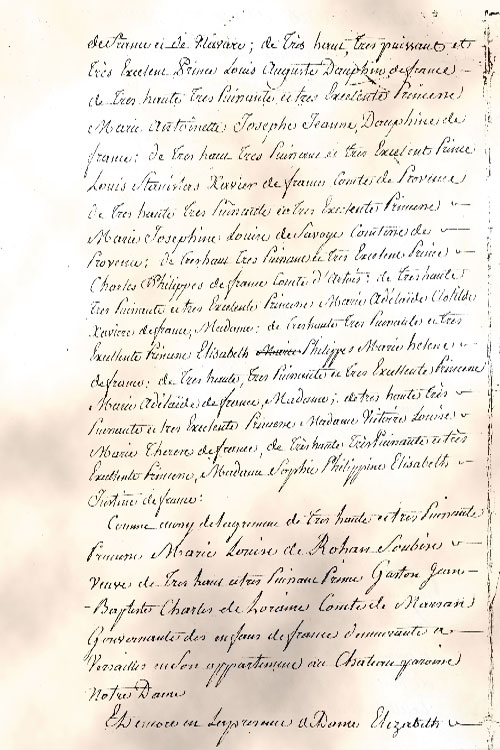 de france et de Navare; de tres haut, tres puissant et
très Excelent Prince Louis Auguste Dauphin de france
de tres haute tres Puissante et tres Excelente Princesse
Marie Antoinette Josephe Jeanne, Dauphine de
france: de tres haut tres Puissant et tres Excelent Prince
Louis Stanislas Xavier de france Comte de Provence
de tres haute tres Puissante et tres Excelente Princesse
Marie Josephine Louise de Savoye Comtesse de
Provence; de tres haut tres Puissant et tres Excelent Prince
Charles Philippes de france Comte d'Artois: de tres haute
tres Puissante et tres Excelente Princesse Marie Adélaïde Clotilde
Xaviere de france, Madame: de tres haute tres Puissante et tres
Excellente Princesse Elisabeth Marie Philippes Marie helene
de france: de tres haute, tres Puissante et tres Excellente Princesse
Marie Adélaïde de france, Madame; de tres haute très
Puissante et tres Excelente Princesse Madame Victoire Louise
Marie Therese de france; de tres haute tres Puissante et très
Excellente Princesse, Madame Sophie Philippine Elisabeth
Justine de france:
Comme aussy de lagrement de tres haute et tres Puissante
Princesse Marie Louise de Rohan Soubise
veuve de tres haut et tres Puissant Prince Gaston Jean
Baptiste Charles de Loraine Comte de Marsan
Gouvernante des enfans de france demeurante a
Versailles en son appartement au Chateau paroisse
Notre Dame
Et encore en la presence de Dame Elizabeth